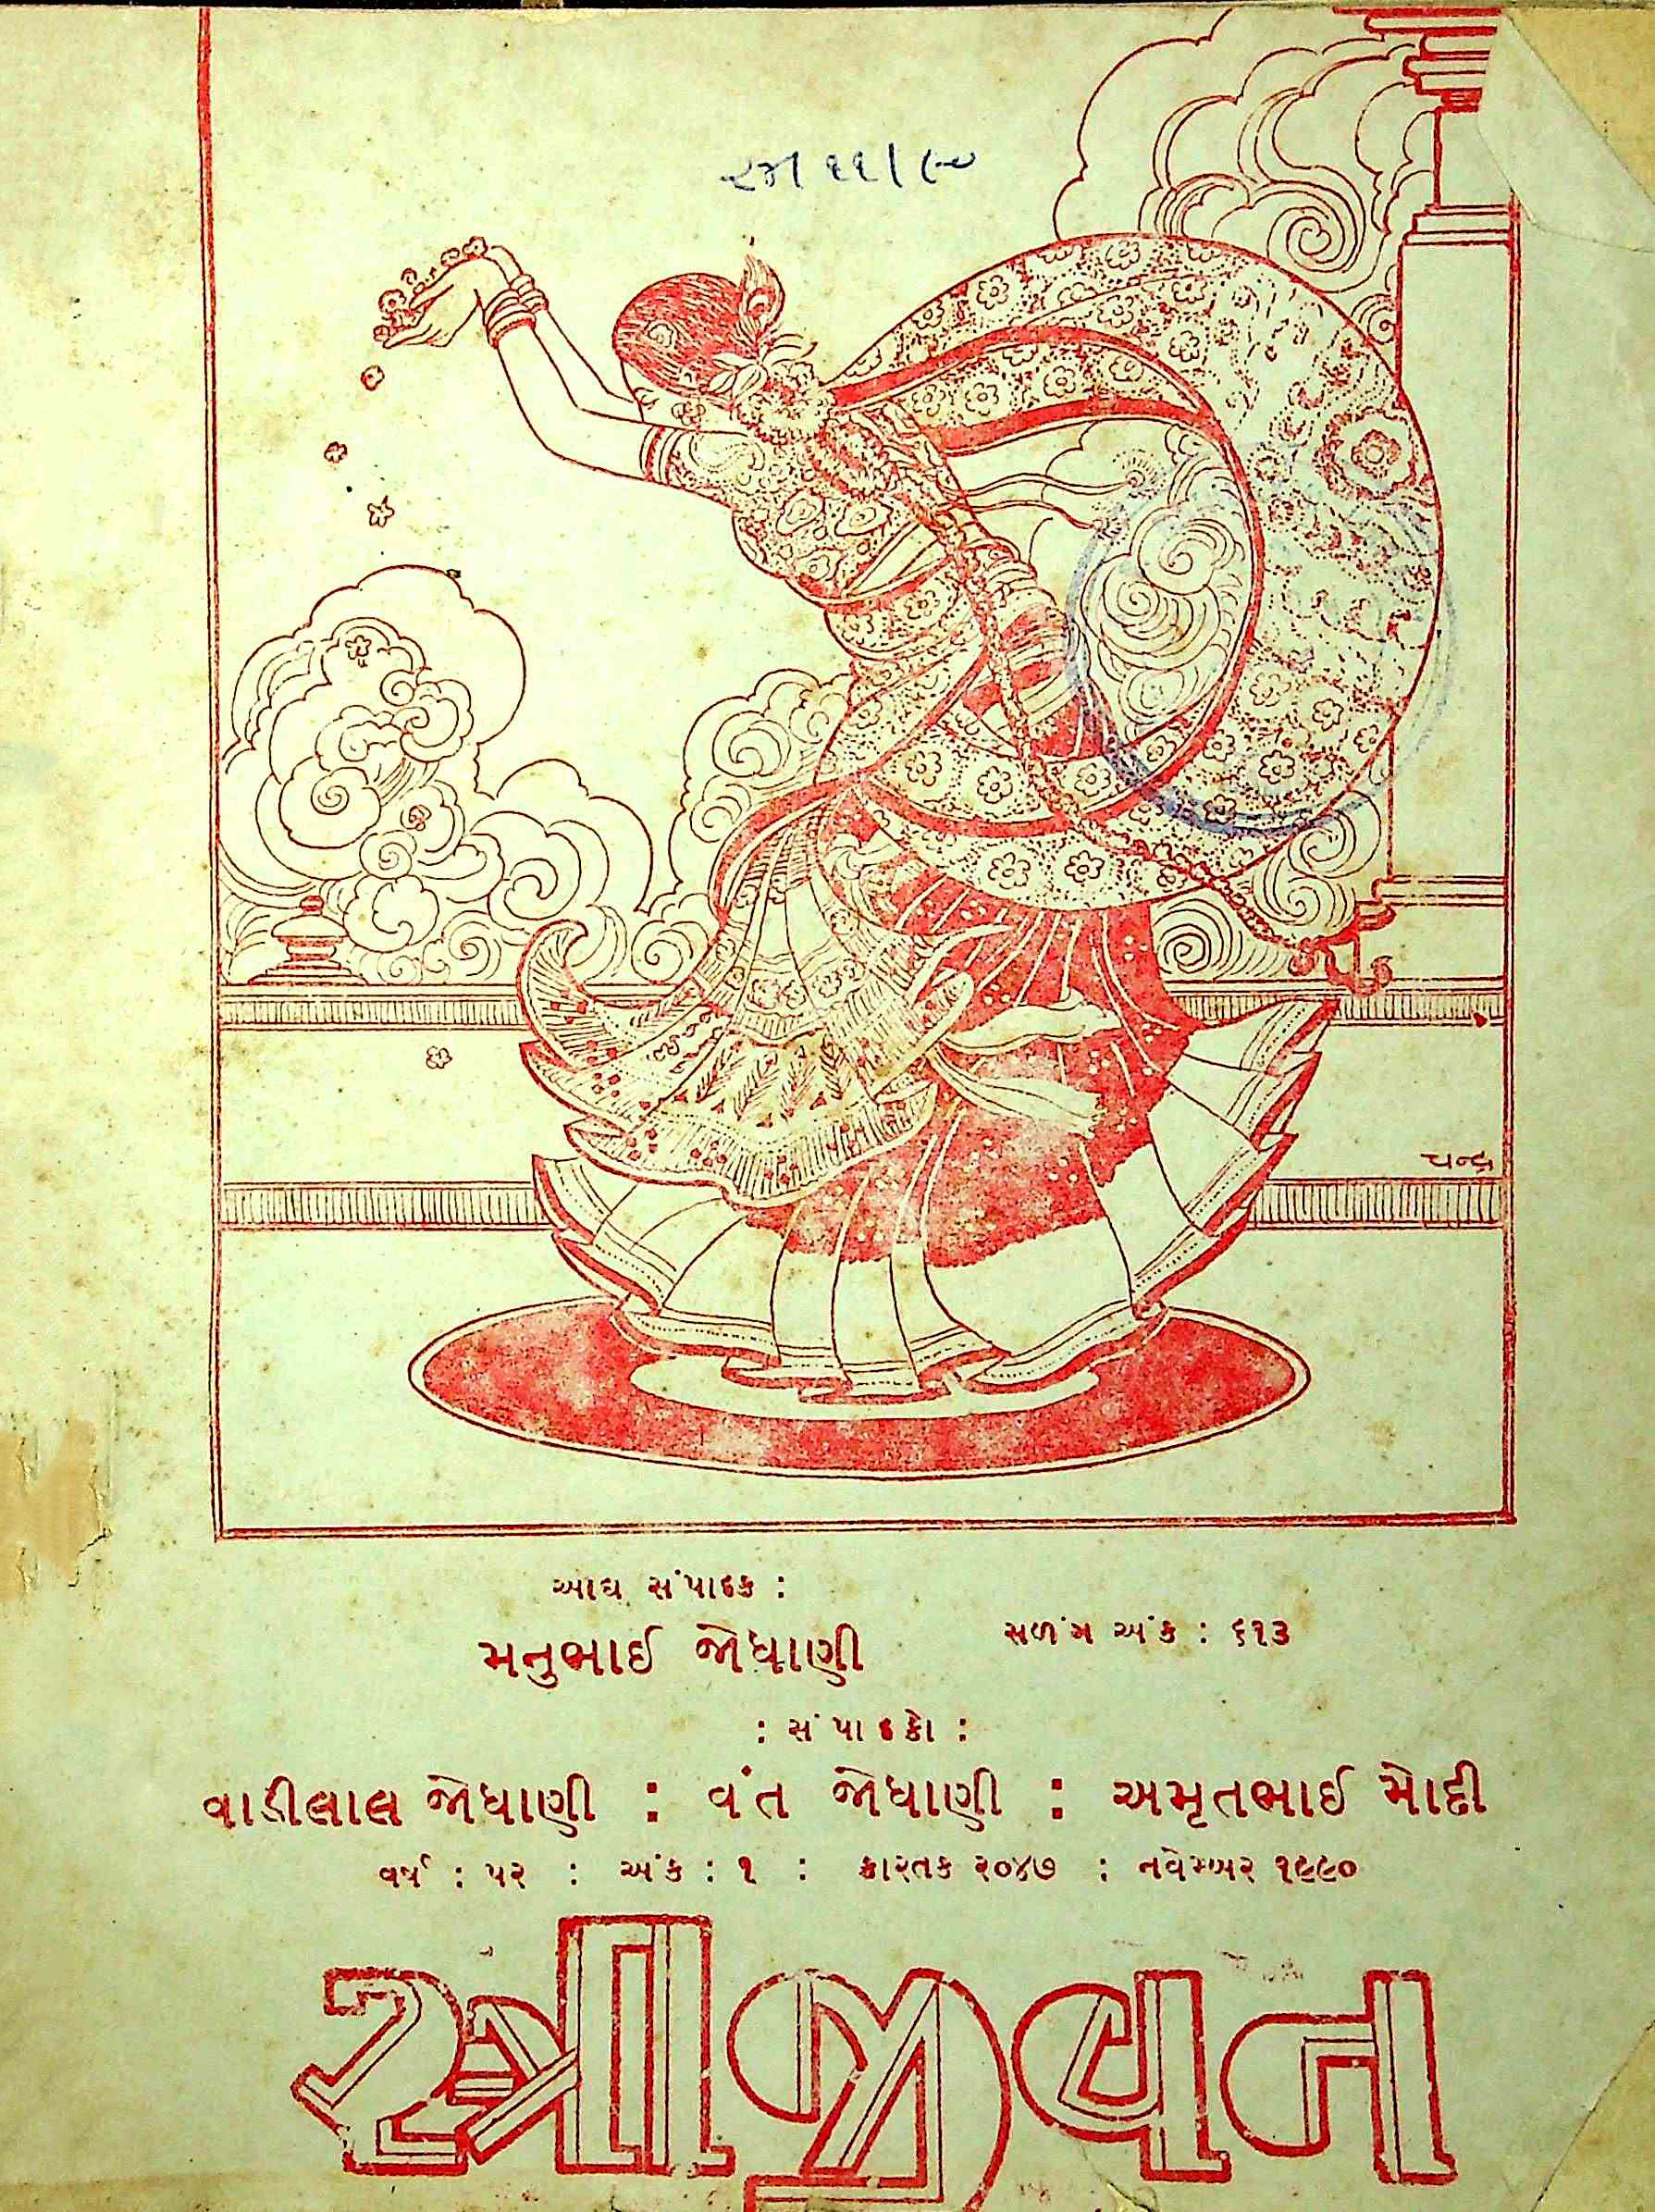 ચન્દ્ર
આદ્ય સંપાદક :
મનુભાઈ જોધાણી
સળંગ અંક : ૬૧૩
: સંપાદકો :
વાડીલાલ જોધાણી : વંત જોધાણી : અમૃતભાઈ મોદી
વર્ષ : ૫૨ : અંક : ૧ : કારતક ૨૦૪૭ : નવેમ્બર ૧૯૯૦
સ્ત્રીજીવન